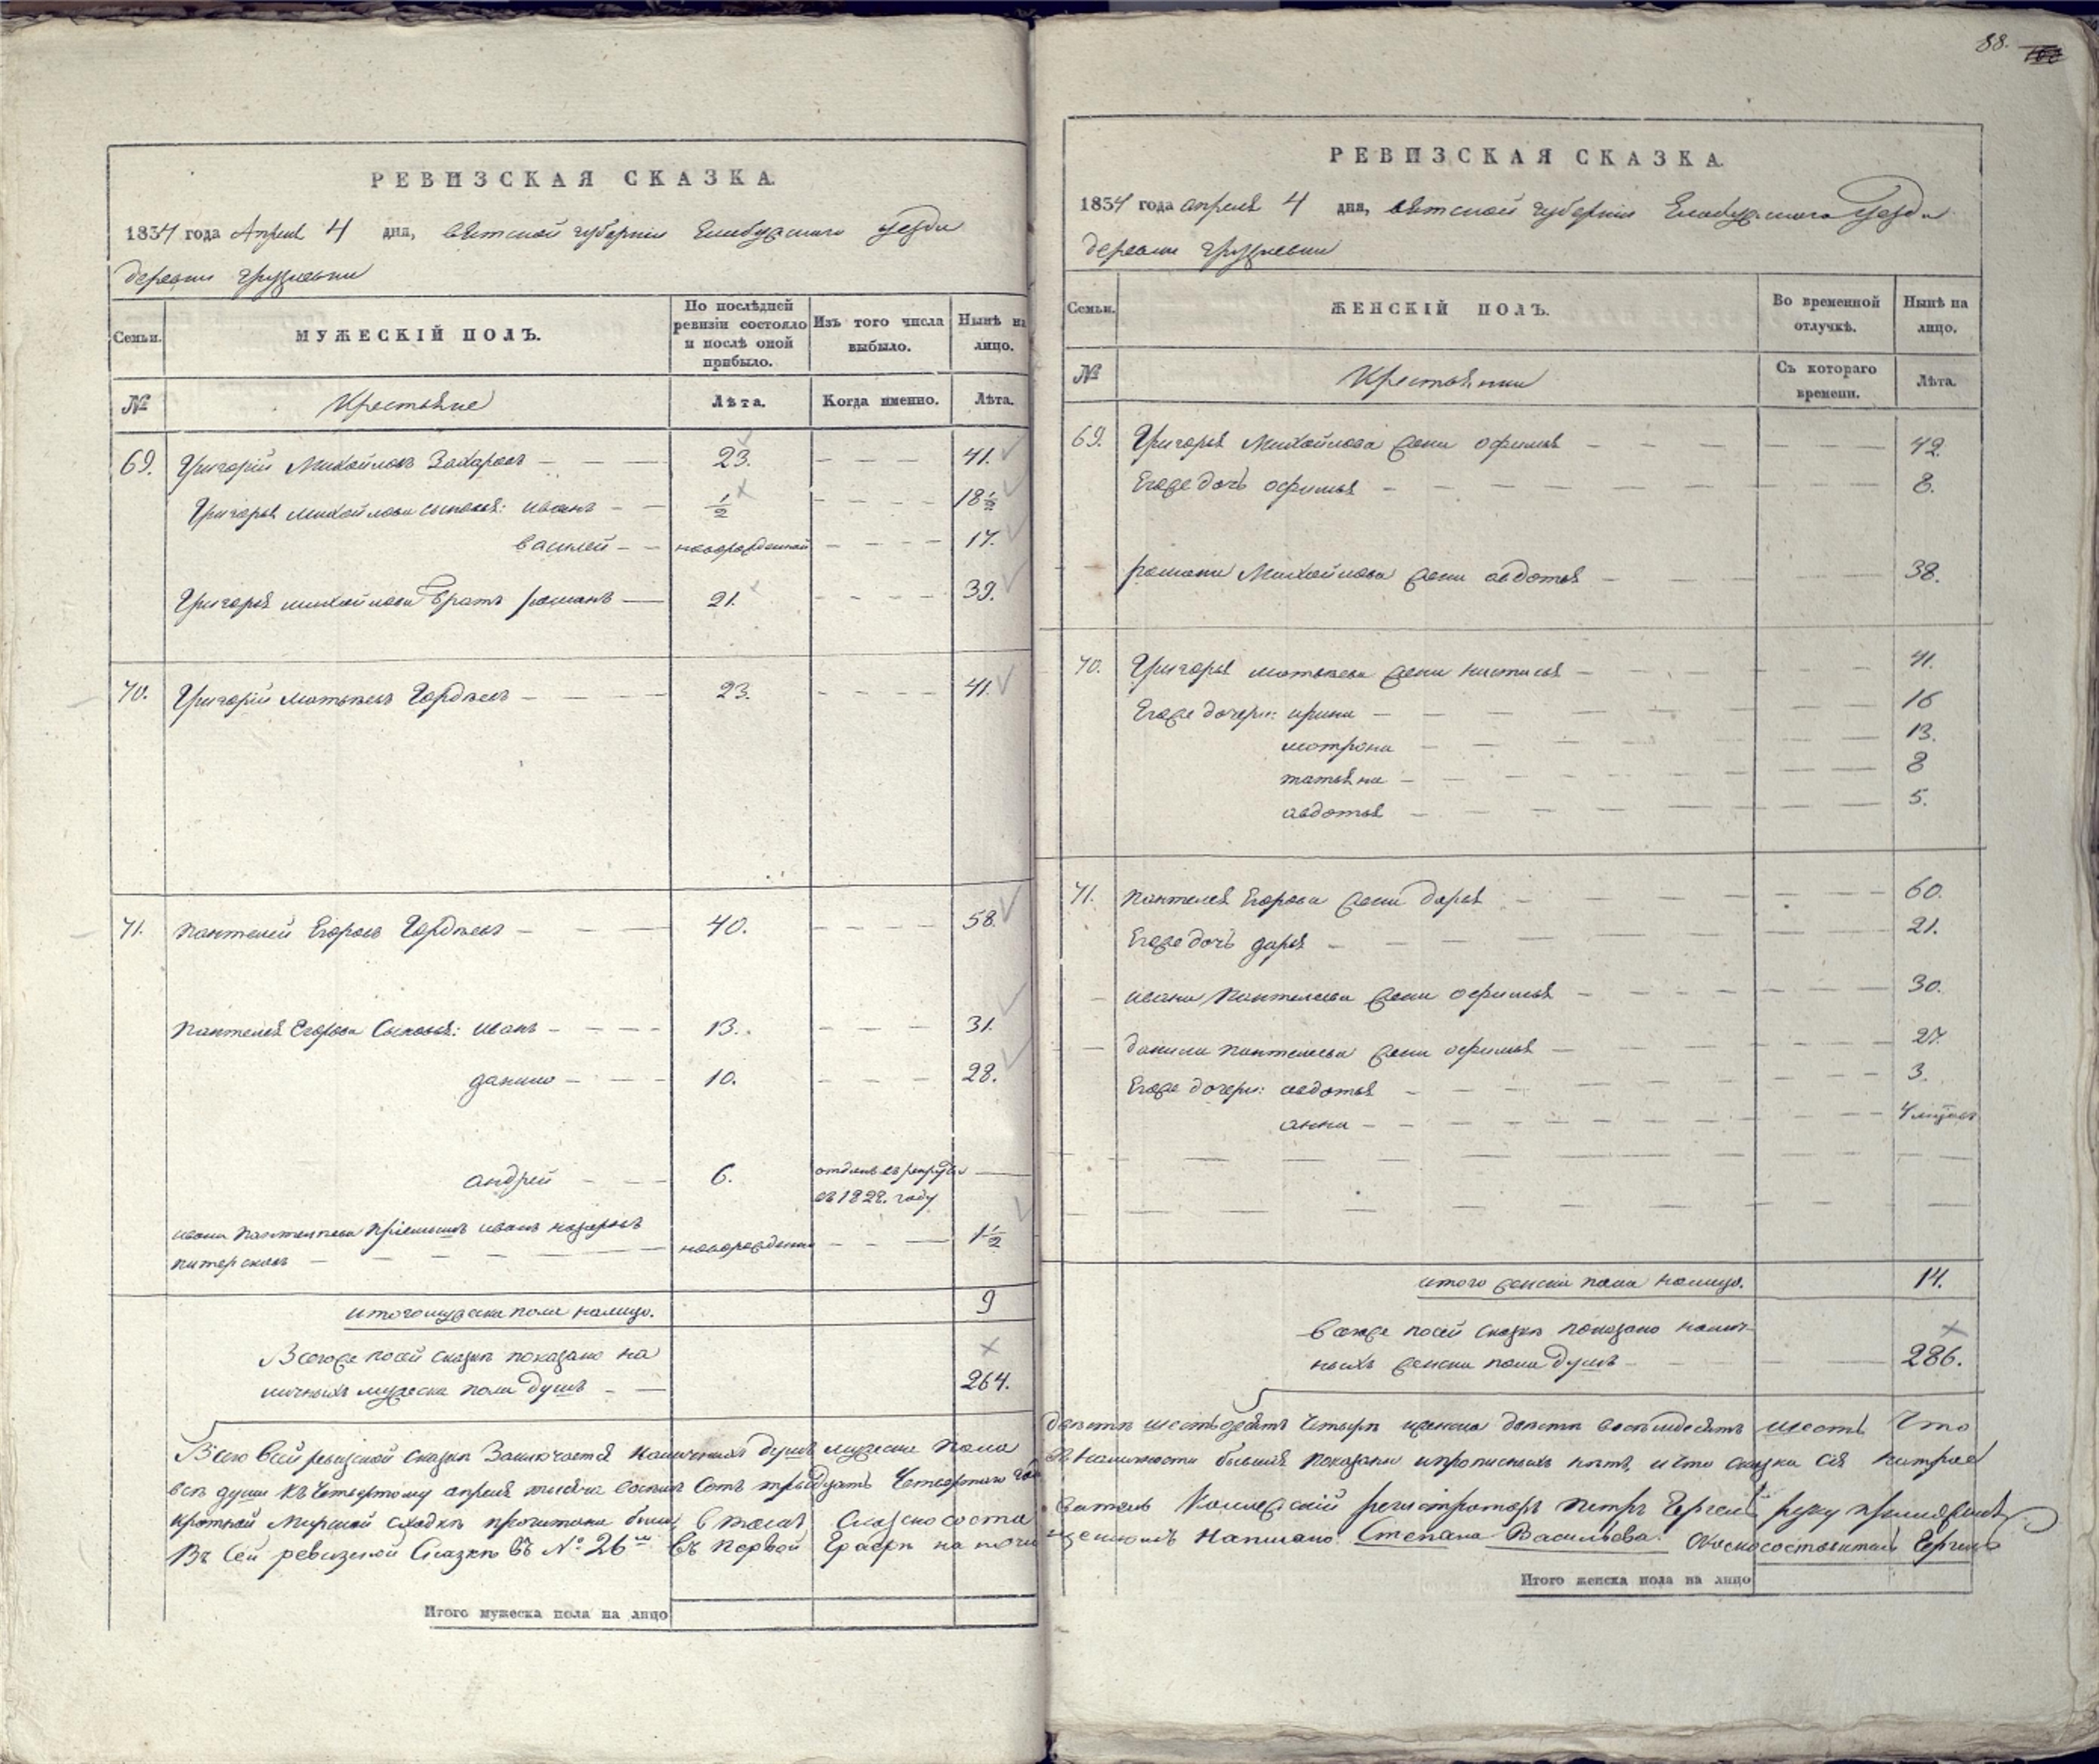 РЕВИЗСКАЯ СКАЗКА.
1834 года Апреля 4 дня, вятской губернии Елабужского уезда
деревни
Семьи.
МУЖЕСКІЙ ПОЛЪ.
По послѣдней ревизіи состояло и послѣ оной прибыло.
Изъ того числа выбыло.
Нынѣ на лицо.
№
Крестьяне
Лѣта.
Когда именно.
Лѣта.
69. Григорій Михайловъ Захаровъ — — — 23. — — — 41.
Григорья михайлова сыновья: иванъ — — ½ — — — — 18½
василей — — новорожденной — — — — 17.
Григорья михайлова братъ романъ — 21. — — — — 39.
70. Григорій матвѣевъ Гордѣевъ — — — 23. — — — — 41.
71. пантелей Егоровъ Гордѣевъ — — — 40. — — — — 58.
пантелея Егорова Сыновья: иванъ — — — — 13. — — — — 31.
данило — — — 10. — — — 28.
андрей — — — 6. отданъ въ рекруты —
въ 1828. году
ивана пантелеева пріемышъ иванъ назаровъ
— — — — новорожденной — — — 1½
итого мужеска пола налицо. 9
Всего же посей сказкѣ показано на
личныхъ мужеска пола душъ — — 264.
Всего всей ревизской сказки Заключается наличныхъ душъ мужеска пола
всѣ души къ четвертому апреля тысяча восемь сотъ тритцать Четвертаго
мирской сходкѣ прочитана была, в томъ
Въ Сей ревизской Сказкѣ въ № 26 въ первой Графѣ на
Итого мужеска пола на лицо
88.
РЕВИЗСКАЯ СКАЗКА.
1834 года апреля 4 дня, вятской губернии Елабужского уезда
деревни
Семьи.
ЖЕНСКІЙ ПОЛЪ.
Во временной отлучкѣ.
Нынѣ на лицо.
№
Крестьянки
Съ котораго времени.
Лѣта.
69. Григорья Михайлова жена офимья — — — — 42.
Егоже дочь офимья — — — — — — 8.
романа Михайлова жена авдотья — — — — 38.
70. Григорья матвѣева жена настасья — — — — 41.
Егоже дочери: ирина — — — — — — 16
матрона — — — — — — 13.
татьяна — — — — — — 8
авдотья — — — — — — 5.
71. пантелея Егорова жена дарья — — — — — 60.
Егоже дочь дарья — — — — — — 21.
ивана пантелеева жена офимья — — — — — 30.
данила пантелеева жена офимья — — — — — 27.
Егоже дочери: авдотья — — — — — — 3.
анна — — — — — — 4 месяцовъ
итого женска пола налицо. 14.
всегоже посей сказкѣ показано налич-
ныхъ женска пола душъ — — — 286.
двѣсти шестьдесятъ четыре женска двѣсти восемьдесятъ шесть Что
в наличности бывшия показаны и прописныхъ нѣтъ, и что сказка сія
Коллежскій регистраторъ петръ руку приложилъ
написано Степана Васильева.
Итого женска пола на лицо